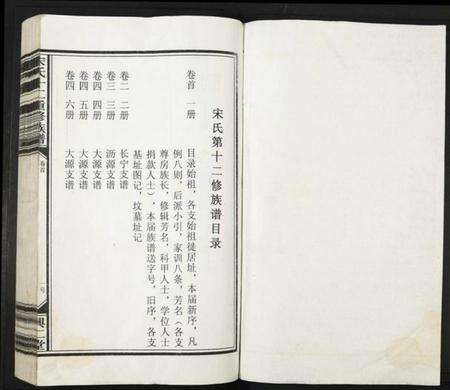 宋氏第十二修族谱目录
卷首 一册
目录始祖，各支始祖徙居址，本届新序，凡
例八则，后派小引，家训八条，芳名（各支
尊房族长，修辑芳名，科甲人士，学位人士
捐款人士），本届族谱送字号，旧序，各支
基址图记，坟墓址记
卷二 二册 长宁支谱
卷三 三册 沥源支谱
卷四 四册 大源支谱
卷四 五册 大源支谱
卷四 六册 大源支谱
宋氏十二重修族谱
卷首